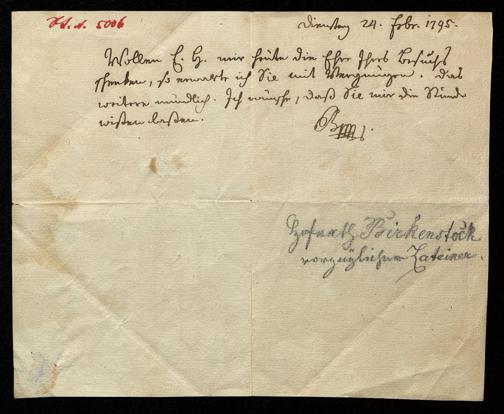 H. A. 5006
Dienstag 24. Febr. 1795.
Wollen E. H. mir heute die Ehre Ihres Besuchs
schenken, so erwarte ich Sie mit Vergnügen. Das
weitere mündlich. Ich wünsche, daß Sie mir die Stunde
wissen lassen.
Hofrath Birkenstock
vorzüglicher Lateiner.